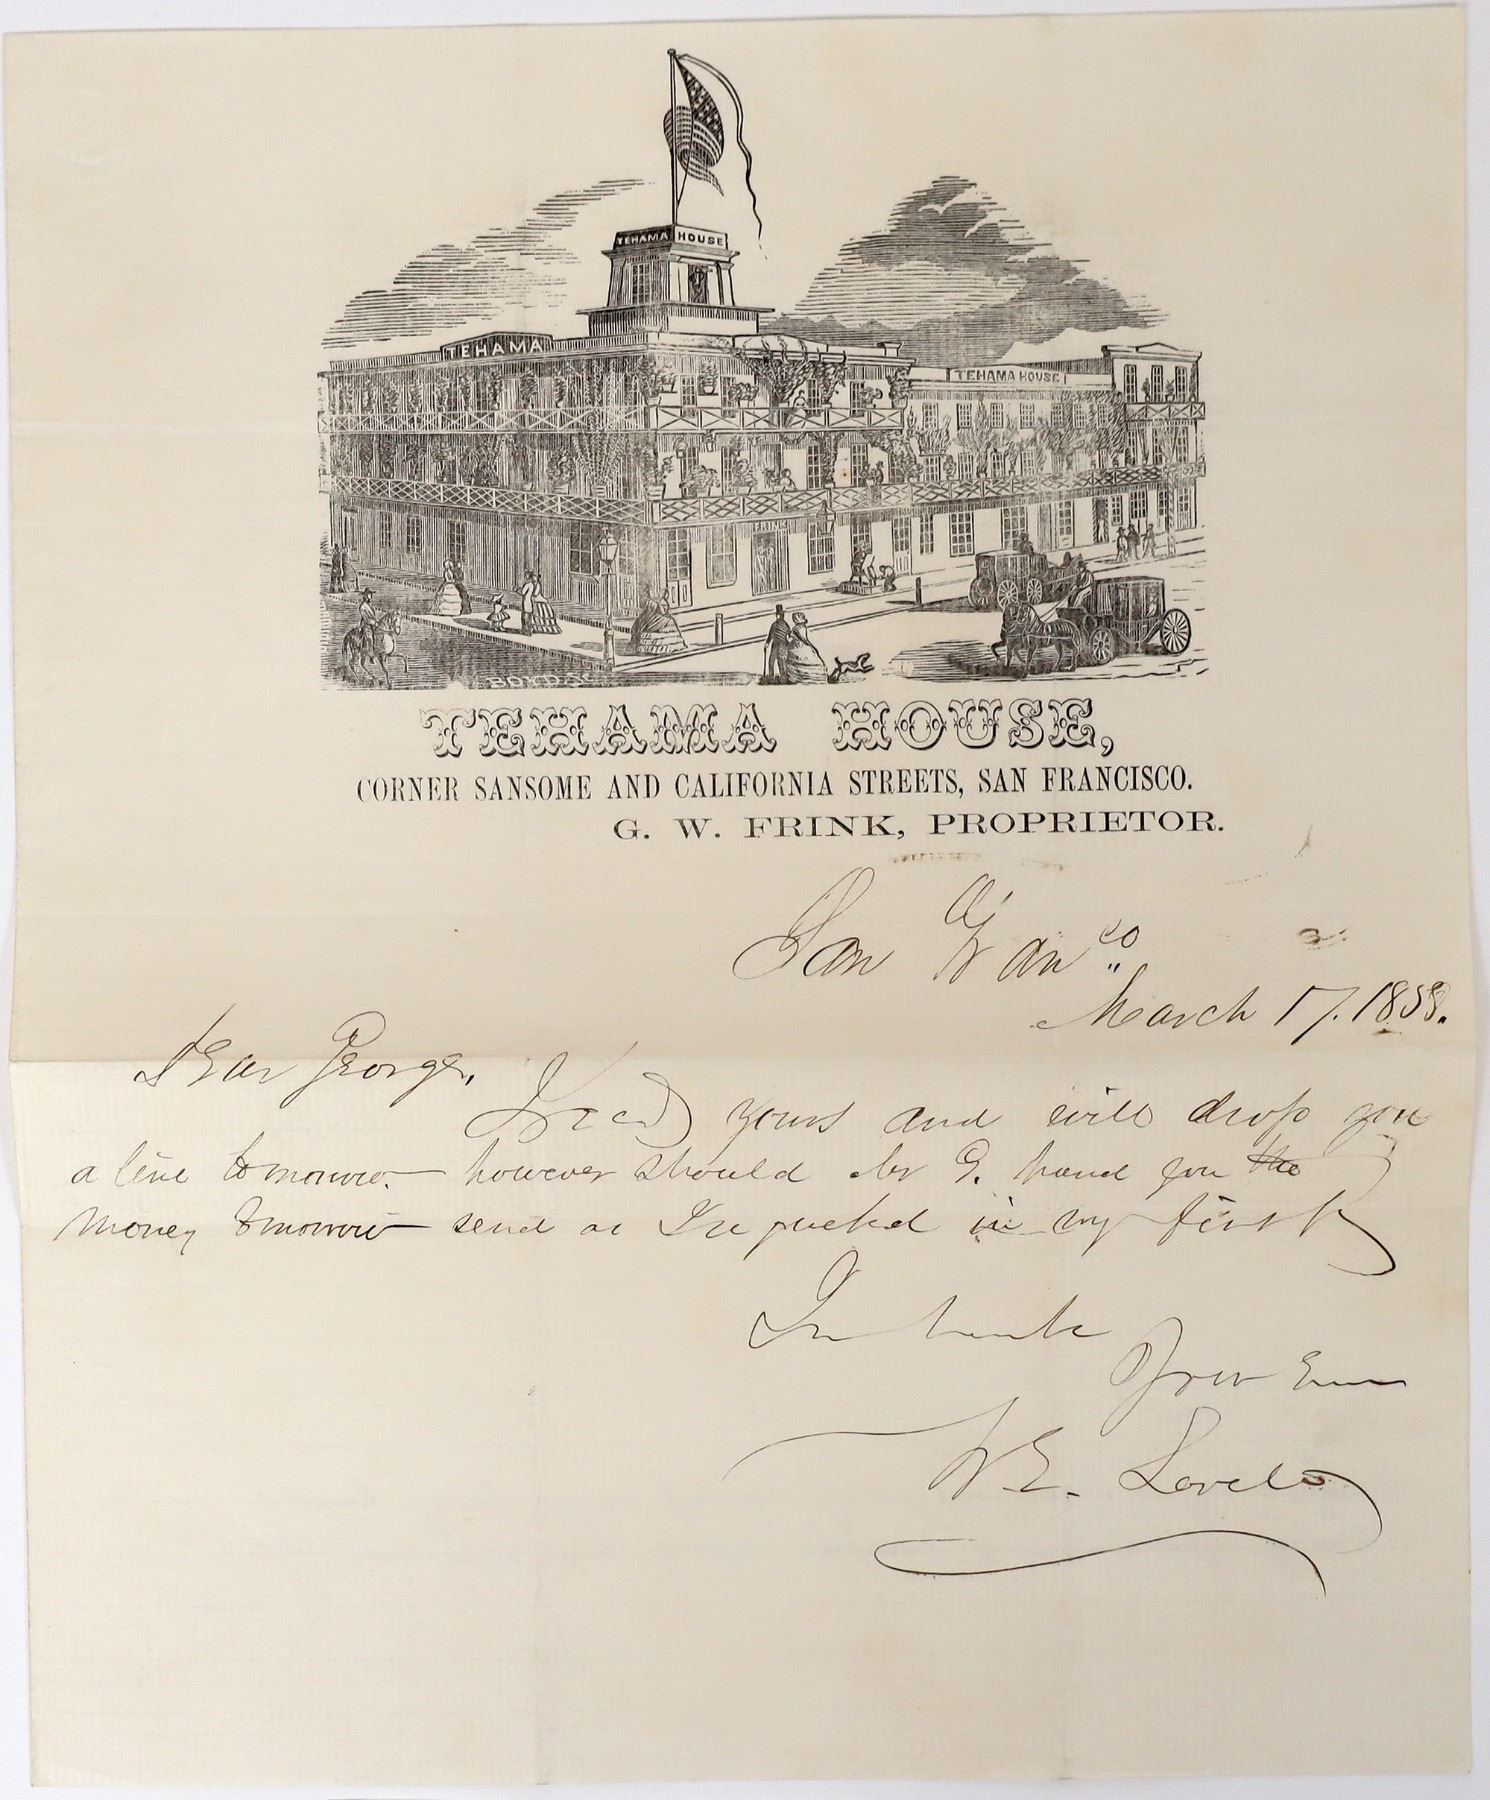 TEHAMA HOUSE
TEHAMA
TEHAMA HOUSE
FRINK
BOYD SC
TEHAMA HOUSE,
CORNER SANSOME AND CALIFORNIA STREETS, SAN FRANCISCO.
G. W. FRINK, PROPRIETOR.
San Fran co
March 17. 1858.
Dear George,
Recd yours and will drop you
a line tomorrow. however should Mr G. hand you the
money tomorrow send as I requested in my first
In haste
Your
W. E. Lovel